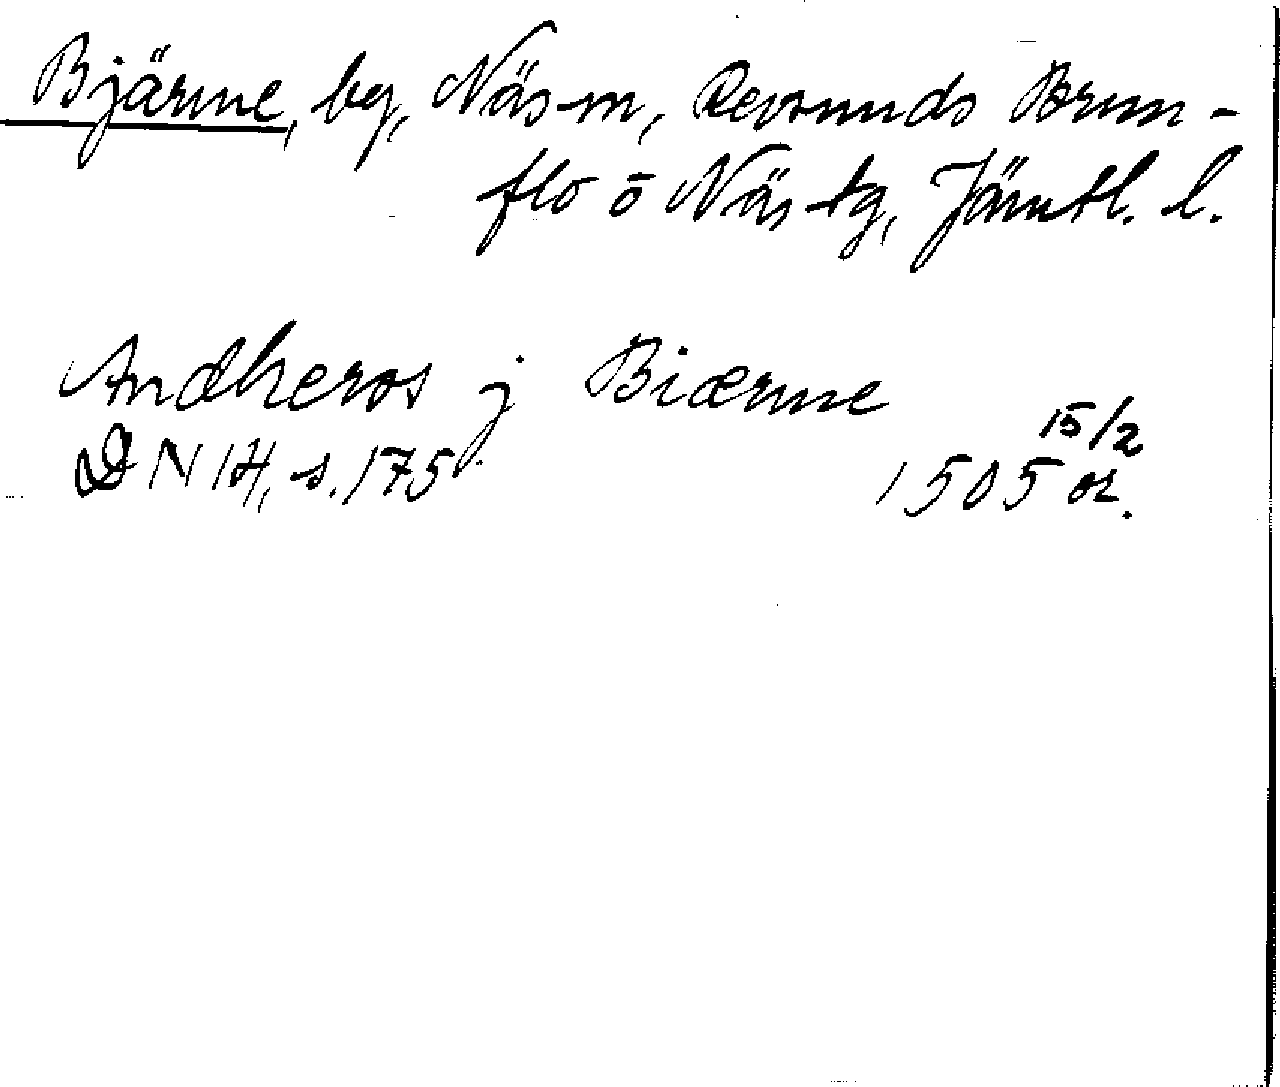 Bjärme, by, Näs sn, Revsunds Brun-
flo o Näs tg, Jämtl. l.
Andheros j Biærme
DN 14, s. 175 15/2
1505 or.